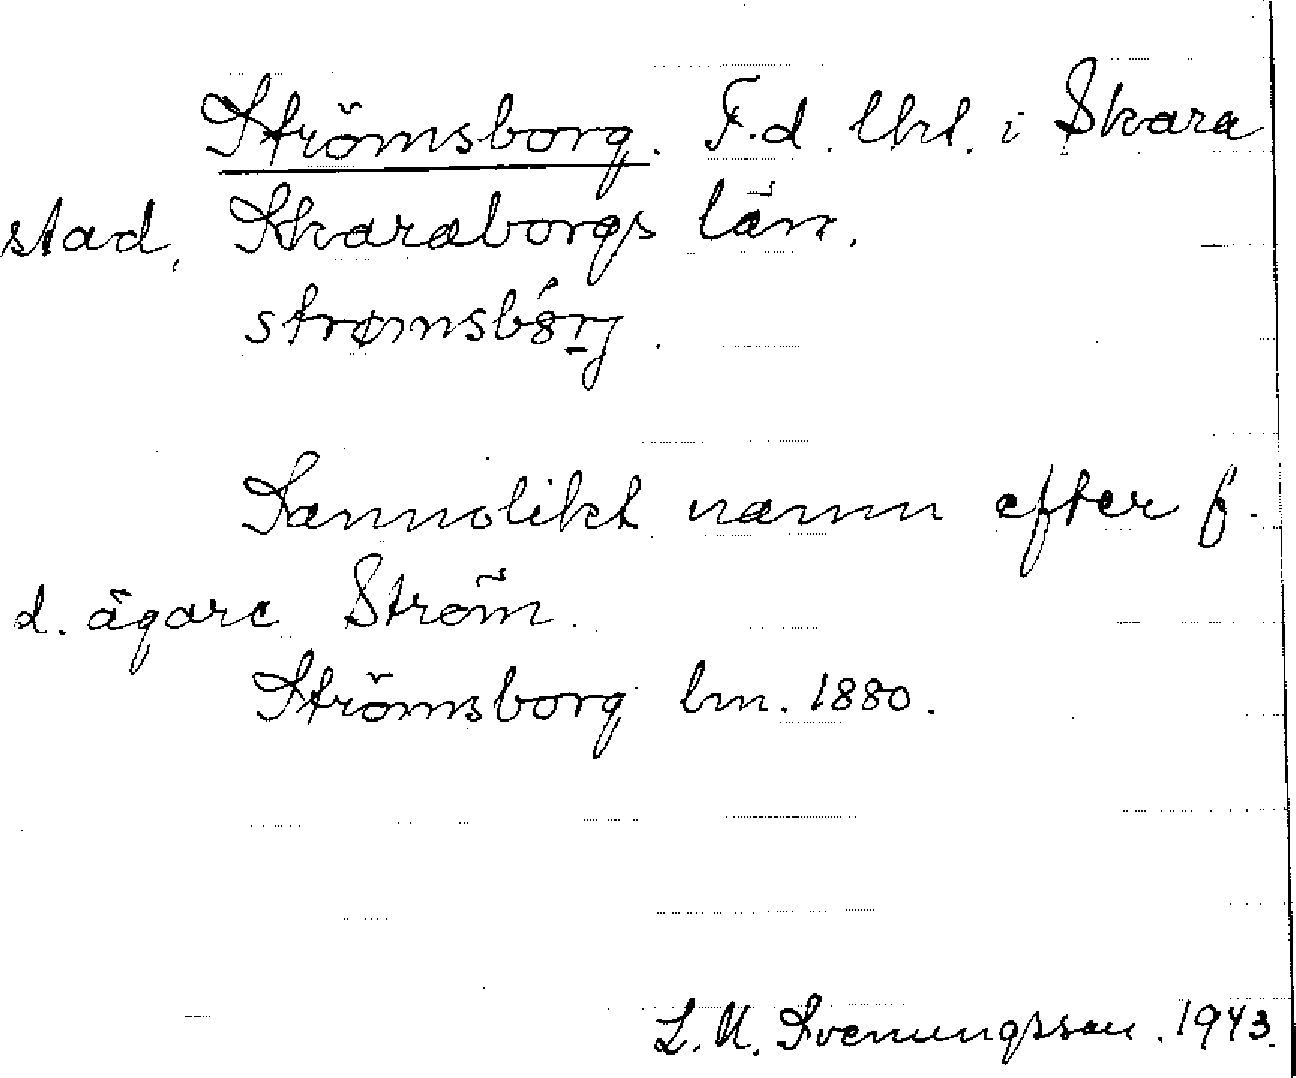 Strömsborg. F.d. lht. i Skara
stad, Skaraborgs län.
strømsbórj.
Sannolikt namn efter f.
d. ägare Ström.
Strömsborg lm. 1880.
L. M. Svenungsson. 1943.